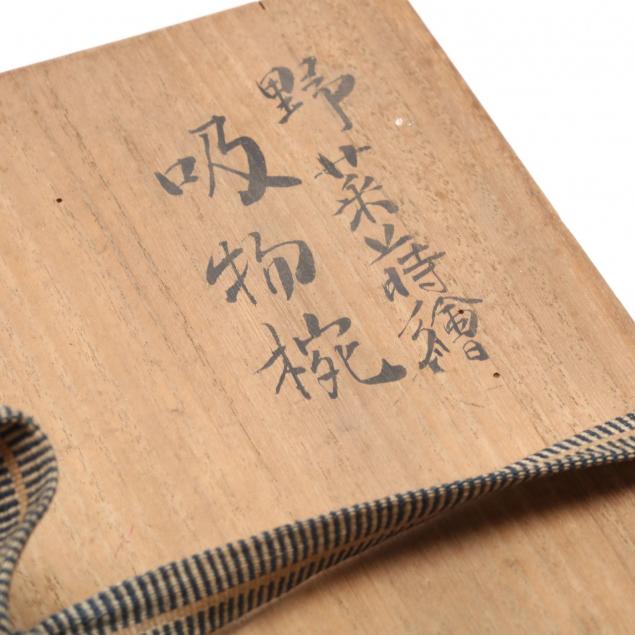 野菜蒔繪
吸物椀